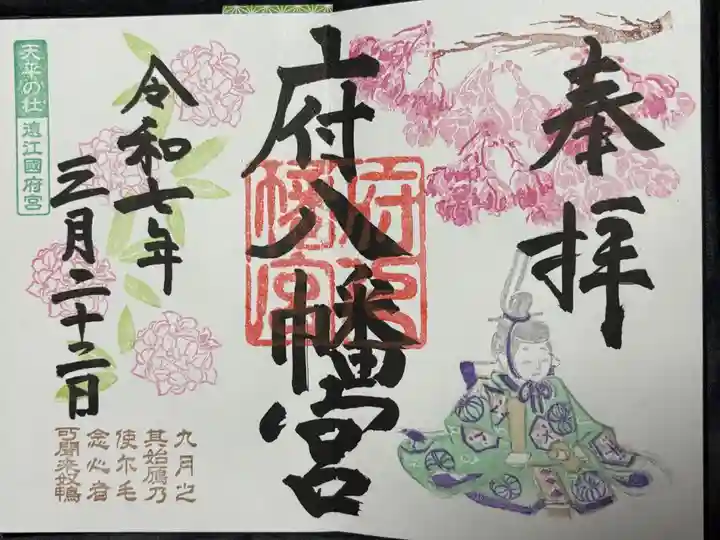 奉拝
府八幡宮
府八
幡宮
令和七年
三月二十二日
天平の杜 遠江國府宮
九月之
其始鴈乃
使尓毛
念心者
可聞来奴鴨